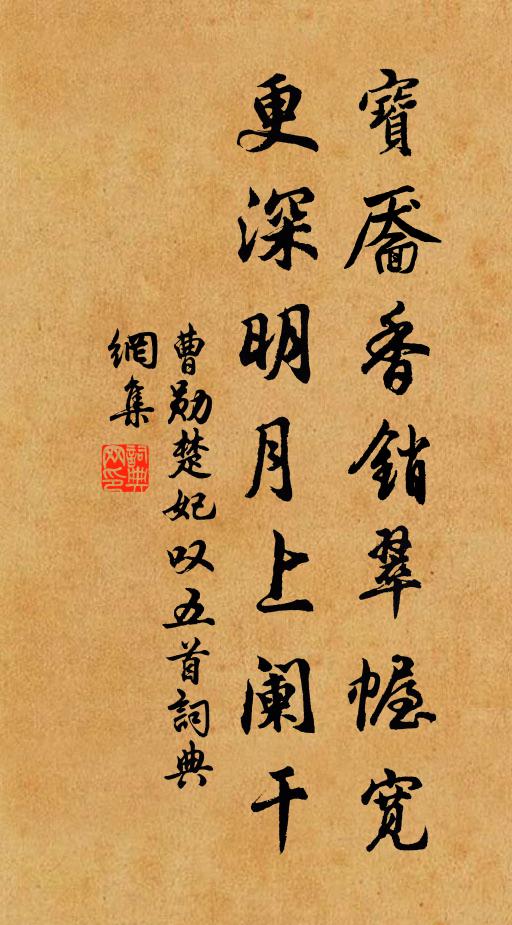 寶靨香銷翠幄寬
更深明月上阑干
曹勛楚妃叹五首詞典
網集
詞典
网印